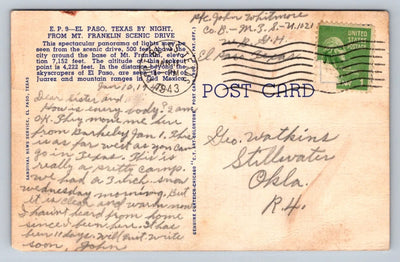 E.P. 9—EL PASO, TEXAS BY NIGHT,
FROM MT. FRANKLIN SCENIC DRIVE
This spectacular panorama of lights may be
seen from the scenic drive, 500 feet above the
city around the base of Mt. Franklin, eleva-
tion 7,152 feet. The altitude of this lookout
point is 4,222 feet. In the distance beyond the
skyscrapers of El Paso, are seen the city of
Juarez and mountain ranges in Old Mexico.
Jan. 10, 19
Dear Sister and
How is every body? I am
OK. They move me here
from Barkeley Jan 1. This
is as far west as you can
go in Texas. This is
really a pretty camp.
We had a 7 inch snow
wednesday morning. But
it is clear and warm now.
I haven't heard from home
since I been here. It has
been 11 days. Will quit write
soon, John
SANDOVAL NEWS SERVICE, EL PASO, TEXAS
GENUINE CURTEICH-CHICAGO "C.T. ART-COLORTONE" POST CARD
Pfc. John Whitmore
Co. B.—
El Paso
PM
1943
UNITED STATES
POSTAGE
POST CARD
Geo. Watkins
Stillwater
Okla.
R.4.